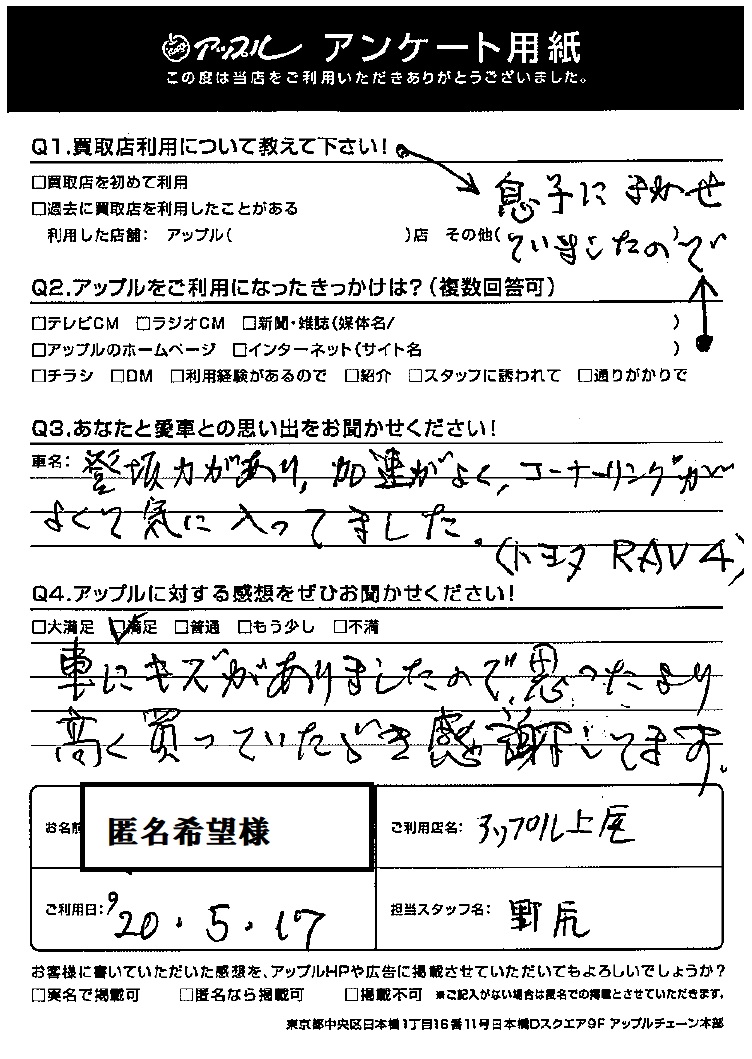 アップル アンケート用紙
この度は当店をご利用いただきありがとうございました。
Q1.買取店利用について教えて下さい!
□買取店を初めて利用
□過去に買取店を利用したことがある
利用した店舗: アップル( )店 その他( )
息子にまかせ
ていましたので
Q2.アップルをご利用になったきっかけは?(複数回答可)
□テレビCM □ラジオCM □新聞・雑誌(媒体名/ )
□アップルのホームページ □インターネット(サイト名 )
□チラシ □DM □利用経験があるので □紹介 □スタッフに誘われて □通りがかりで
Q3.あなたと愛車との思い出をお聞かせください!
車名: 登坂力があり, 加速がよく, コーナーリングが
よくて気に入ってました。
(トヨタ RAV4)
Q4.アップルに対する感想をぜひお聞かせください!
□大満足 ☑満足 □普通 □もう少し □不満
車にキズがありましたので、思ったより
高く買っていただき感謝してます。
お名前 匿名希望様
ご利用店名: アップル上尾
ご利用日: 20.5.17
担当スタッフ名: 野尻
お客様に書いていただいた感想を、アップルHPや広告に掲載させていただいてもよろしいでしょうか?
□実名で掲載可 □匿名なら掲載可 □掲載不可 ※ご記入がない場合は匿名での掲載とさせていただきます。
東京都中央区日本橋1丁目16番11号日本橋Dスクエア9F アップルチェーン本部